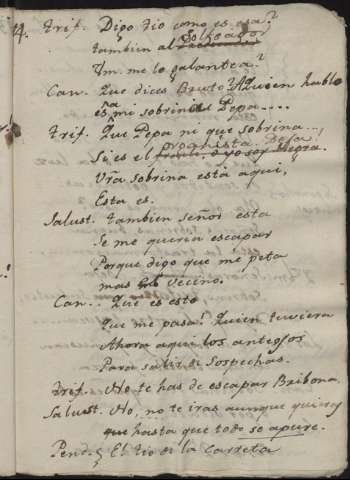 4. Trif. Digo tio como es esa?
tambien al Solfeador
Vm. me lo galantea?
Can. Que dices Bruto? Aquien hablo
es mi sobrina Pepa....
Trif. Qué Pepa ni que sobrina...,
Si es el proquista Pepa,
Vra sobrina está aqui,
Esta es.
Salust. tambien señor esta
se me queria escapar
Porque digo que me peta
mas Vecino.
Can.. Que es esto
que me pasa! Quien tuviera
Ahora aqui los anteojos
Para salir de sospechas.
Trif. No te has de escapar Bribona.
Salust. No, no te iras aunque quieras
que hasta que todo se apure.
Pend. El tio de la Carreta